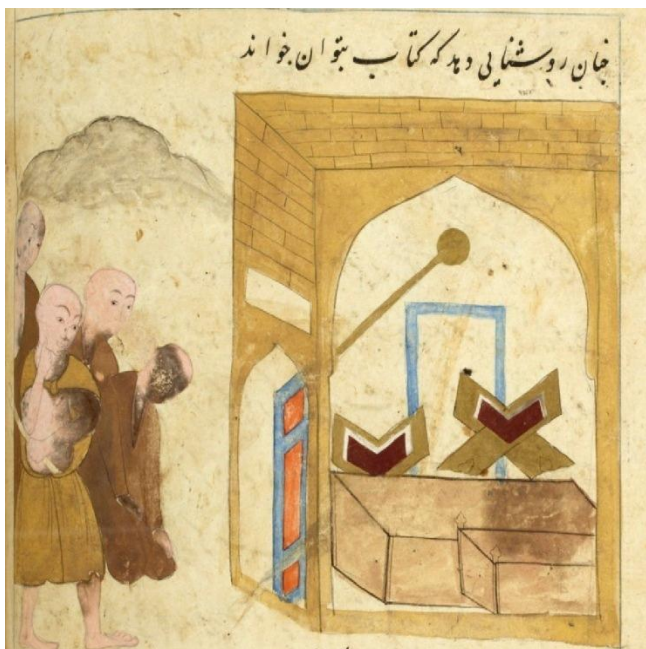 چنان روشنایی دهد که کتاب بتوان خواند